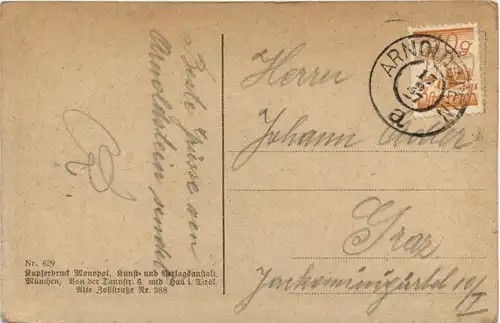 Beste Grüsse von
Arnoldstein sendet
Nr. 629
Kupferdruck Monopol, Kunst- und Verlagsanstalt,
München, Von der Tannstr. 6 und Hall i. Tirol
Alte Zollstraße Nr. 388
ARNOLDSTEIN
a
Herrn
Johann
Graz
Jackominigürtel